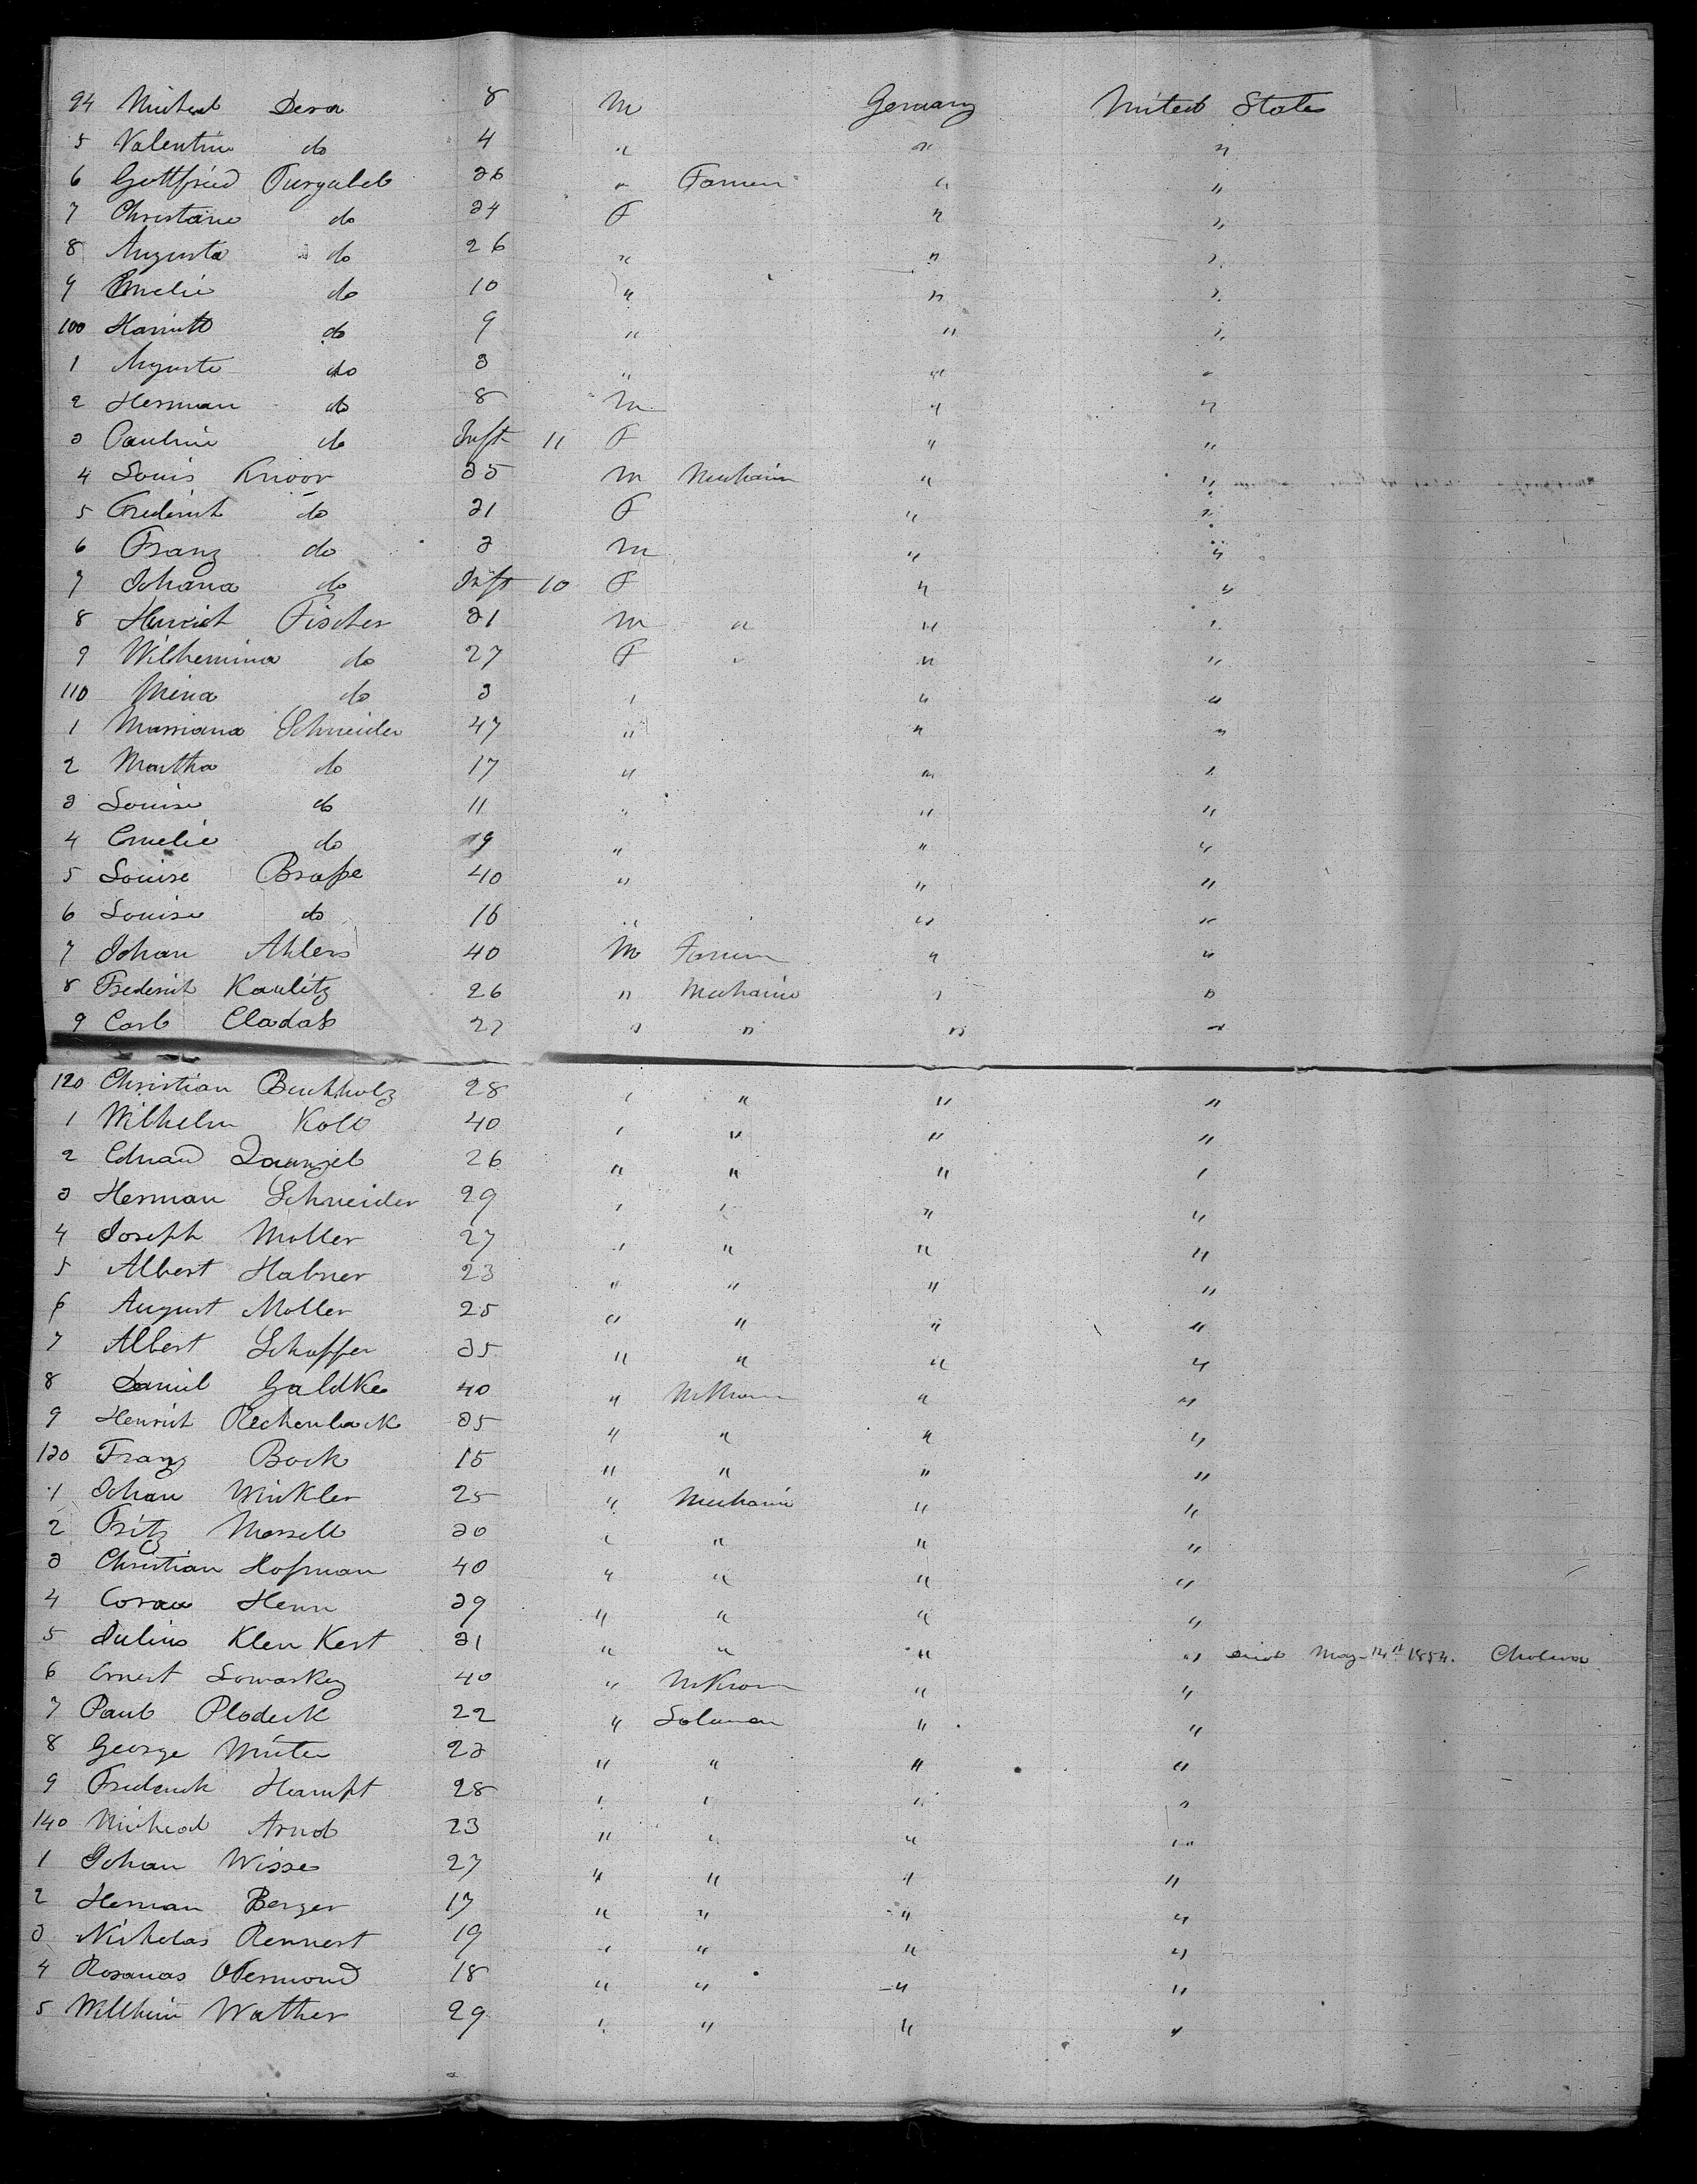 94 Micheal Dera 8 M Germany United States
5 Valentine do 4 " " "
6 Gottfried Turgabel 36 " Farmer " "
7 Christane do 34 F " "
8 Augusta do 26 " " "
9 Emelie do 10 " " "
100 Hariett do 9 " " "
1 Auguste do 3 " " "
2 Herman do 8 M " "
3 Pauline do Inft 11 F " "
4 Louis Knoor 35 M Mechanic " "
5 Frederich do 31 F " "
6 Franz do 3 M " "
7 Johana do Inft 10 F " "
8 Henrich Fischer 31 M " " "
9 Wilhemina do 27 F " " "
110 Mina do 3 " " "
1 Marriana Schneider 47 " " "
2 Martha do 17 " " "
3 Louise do 11 " " "
4 Emelie do 9 " " "
5 Louise Braße 40 " " "
6 Louise do 16 " " "
7 Johan Ahlers 40 M Farmer " "
8 Frederich Kaulitz 26 " Mechanic " "
9 Carl Cladas 27 " " " "
120 Christian Buchholz 28 " " " "
1 Wilhelm Koll 40 " " " "
2 Eduard 26 " " " "
3 Herman Schneider 29 " " " "
4 Joseph Moller 27 " " " "
5 Albert Habner 23 " " " "
6 August Moller 25 " " " "
7 Albert Schaffer 35 " " " "
8 Daniel Galdke 40 " " "
9 Henrich Rechenback 35 " " " "
130 Franz Bock 15 " " " "
1 Johan Winkler 25 " Mechanic " "
2 Fritz Morsell 30 " " " "
3 Christian Hofman 40 " " " "
4 Henn 39 " " " "
5 Julius Klen Kert 31 " " " " died May 14th 1854. Cholera
6 Ernest Lowarkey 40 " " "
7 Paul Plodeck 22 " " "
8 George Minter 23 " " " "
9 Frederick Hampt 28 " " " "
140 Micheal Arnd 23 " " " "
1 Johan Wisse 27 " " " "
2 Herman Berger 17 " " " "
3 Nicholas Rennert 19 " " " "
4 Rosanas 18 " " " "
5 Willhim Wather 29 " " " "